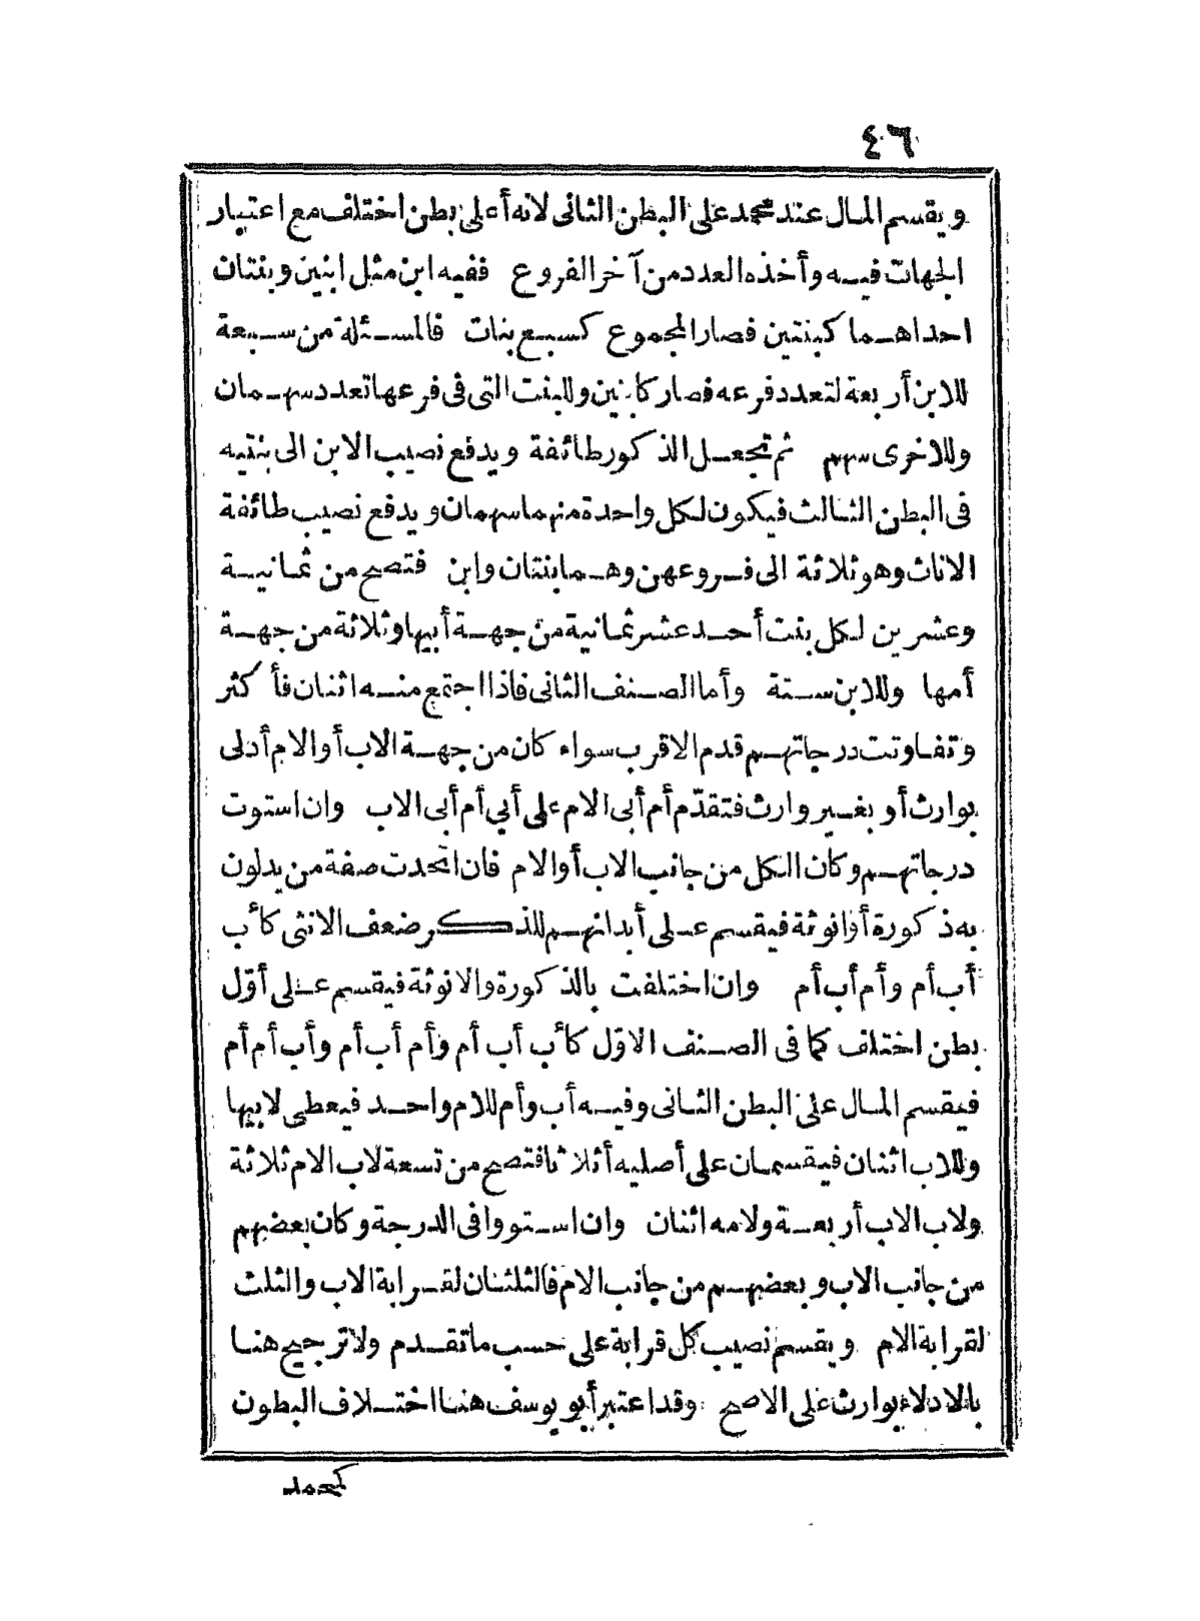 ٤٦
ويقسم المال عند محمد على البطن الثانى لانه أعلى بطن اختلف مع اعتبار
الجهات فيه وأخذه العدد من آخر الفروع ففيه ابن مثل ابنين وبنتان
احداهما كبنتين فصار المجموع كسبع بنات فالمسئلة من سبعة
للابن أربعة لتعدد فرعه فصار كابنين وللبنت التى فى فرعها تعدد سهمان
وللاخرى سهم ثم تجعل الذكور طائفة ويدفع نصيب الابن الى بنتيه
فى البطن الثالث فيكون لكل واحدة منهما سهمان ويدفع نصيب طائفة
الاناث وهو ثلاثة الى فروعهن وهما بنتان وابن فتصح من ثمانية
وعشرين لكل بنت أحد عشر ثمانية من جهة أبيها وثلاثة من جهة
أمها وللابن ستة وأما الصنف الثانى فاذا اجتمع منه اثنان فأكثر
وتفاوتت درجاتهم قدم الاقرب سواء كان من جهة الاب أو الام أدلى
بوارث أو بغير وارث فتقدّم أم أبى الام على أبي أم أبى الاب وان استوت
درجاتهم وكان الكل من جانب الاب أو الام فان اتحدت صفة من يدلون
به ذكورة أو أنوثة فيقسم على أبدانهم للذكر ضعف الانثى كأب
أب أم وأم أب أم وان اختلفت بالذكورة والانوثة فيقسم على أوّل
بطن اختلف كما فى الصنف الاوّل كأب أب أم وأم أب أم وأب أم أم
فيقسم المال على البطن الثانى وفيه أب وأم للام واحد فيعطى لابيها
وللاب اثنان فيقسمان على أصليه أثلاثا فتصح من تسعة لاب الام ثلاثة
ولاب الاب أربعة ولامه اثنان وان استووا فى الدرجة وكان بعضهم
من جانب الاب وبعضهم من جانب الام فالثلثان لقرابة الاب والثلث
لقرابة الام ويقسم نصيب كل قرابة على حسب ما تقدم ولا ترجيح هنا
بالادلاء بوارث على الاصح وقد اعتبر أبو يوسف هنا اختلاف البطون
كمحمد